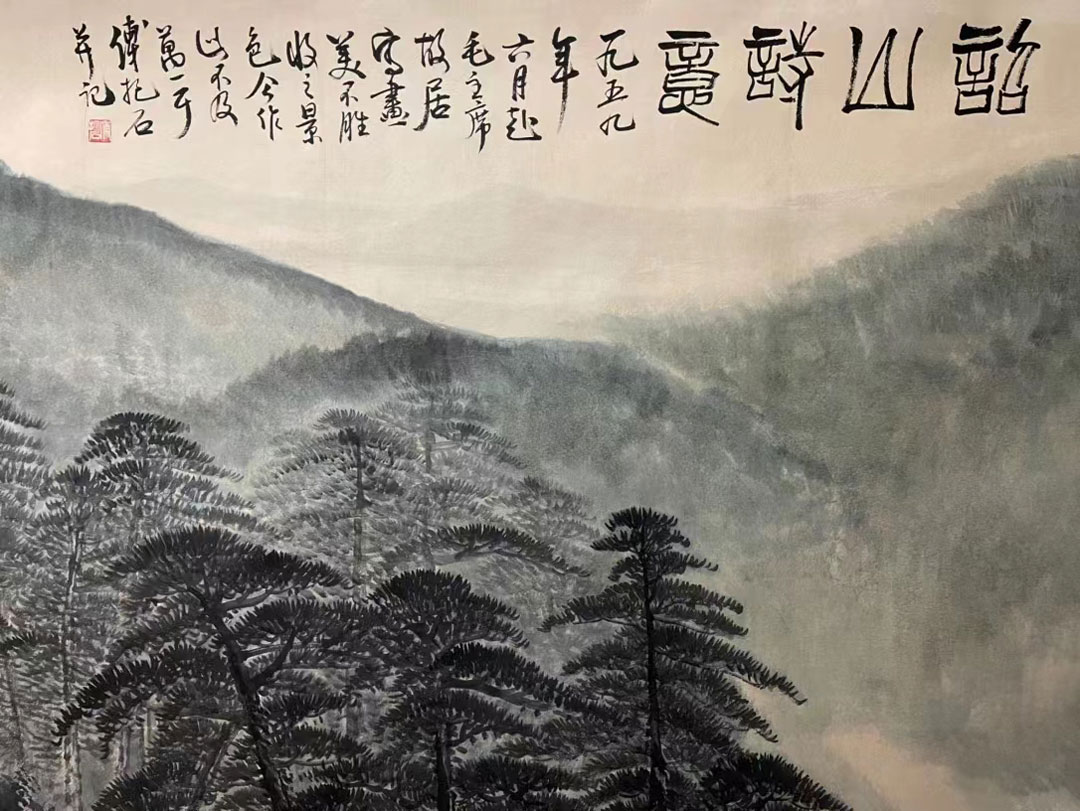 韶山詩意
一九五九
年
六月赴
毛主席
故居
寫畫
美不胜
收之景
色今作
此不及
萬一耳
傅抱石
并记